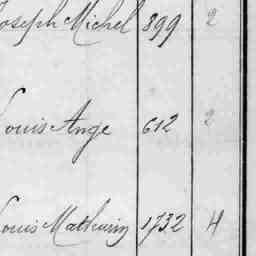 Joseph Michel 899 2
Louis Ange 612 2
Louis Mathurin 1732 4